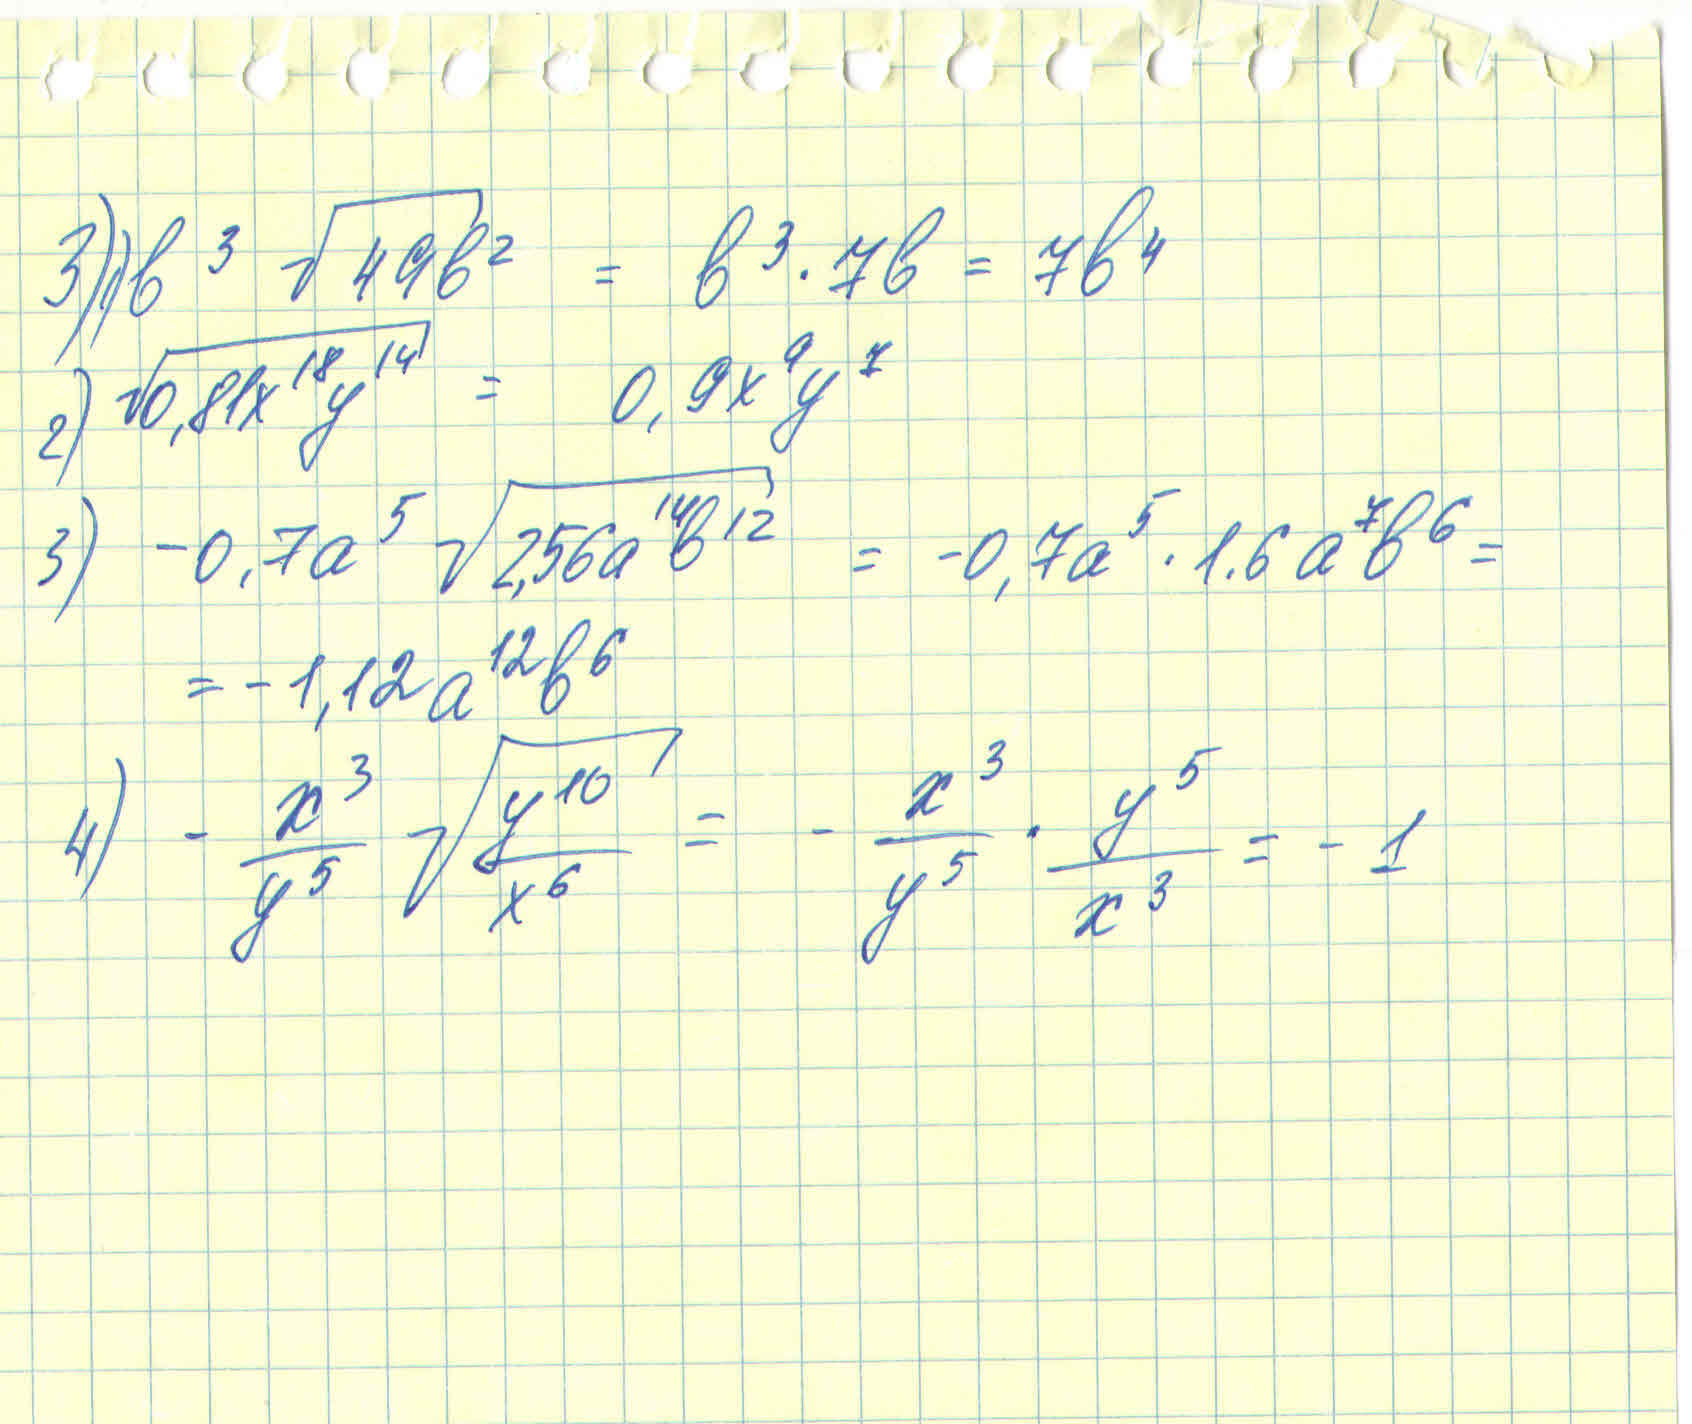 3) 1) в³ √49в² = в³ · 7в = 7в⁴
2) √0,81x¹⁸y¹⁴ = 0,9x⁹y⁷
3) -0,7a⁵ √2,56a¹⁴в¹² = -0,7a⁵ · 1.6a⁷в⁶ =
= -1,12a¹²в⁶
4) - x³/y⁵ √y¹⁰/x⁶ = - x³/y⁵ · y⁵/x³ = -1